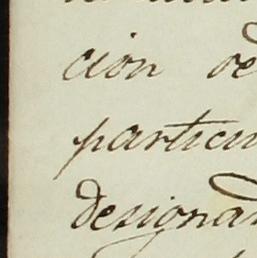 cion de
particu
designa